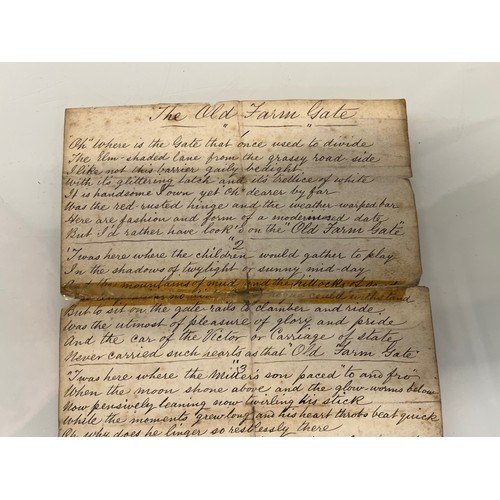 The Old Farm Gate
1
"Oh" Where is the Gate that once used to divide
The Elm-shaded lane from the grassy road-side
I like not this barrier gaily bedight
With its glittering latch and its trellice of white
It is handsome I own yet "Oh" dearer by far
Was the red-rusted hinge and the weather-warped bar
Here are fashion and form of a modernised date
But I'd rather have look'd on the "Old Farm Gate"
2
'Twas here where the children would gather to play
In the shadows of twylight or sunny mid-day
And the mountains of mud and the hillocks of
But to sit on the gate rails to clamber and ride
Was the utmost of pleasure of glory and pride
And the car of the Victor or Carriage of state
Never carried such hearts as that "Old Farm Gate"
3
"Twas here where the Miller's son paced" to and fro
When the moon shone above and the glow-worms below
Now pensively leaning now twirling his stick
While the moments grew long and his heart throbs beat quick
Oh why does he linger so restlessly there